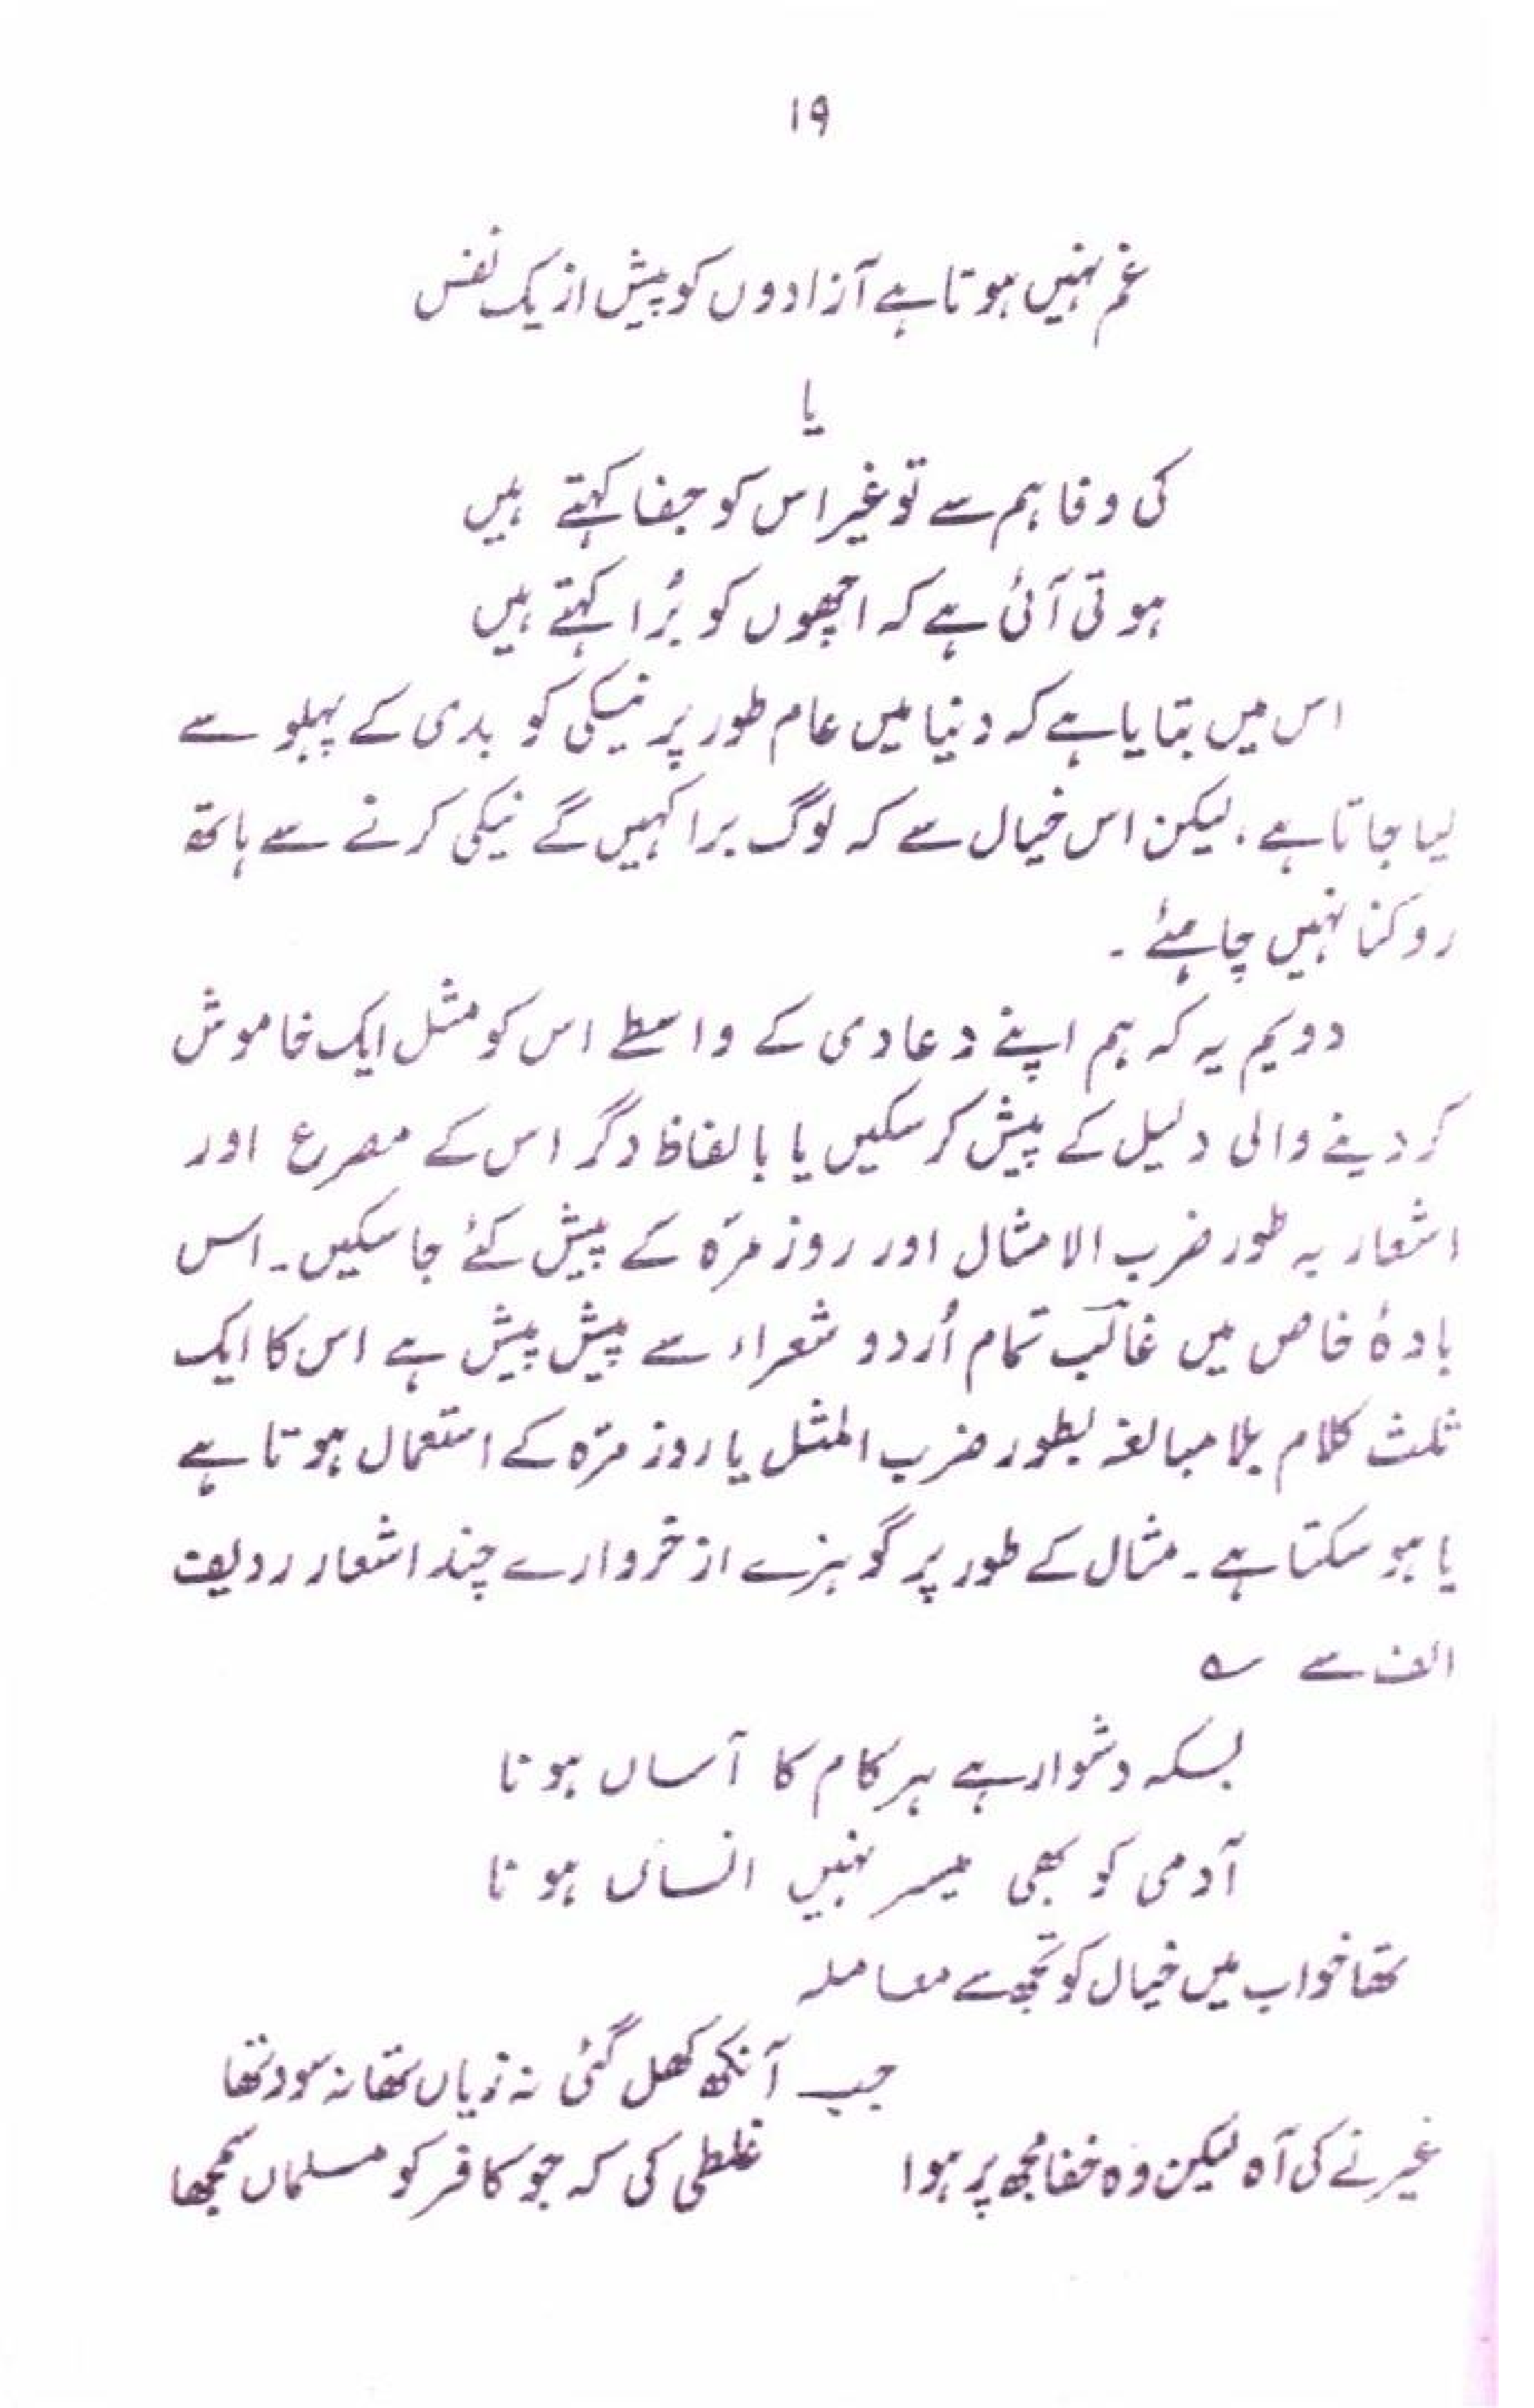 ۱۹
غم نہیں ہوتا ہے آزادوں کو پیش از یک نفس
یا
کی وفا ہم سے تو غیر اس کو جفا کہتے ہیں
ہوتی آئی ہے کہ اچھوں کو بُرا کہتے ہیں
اس میں بتایا ہے کہ دنیا میں عام طور پر نیکی کو بدی کے پہلو سے
لیا جاتا ہے، لیکن اس خیال سے کہ لوگ برا کہیں گے نیکی کرنے سے ہاتھ
روکنا نہیں چاہئے ۔
دویم یہ کہ ہم اپنے دعاوی کے واسطے اس کو مثل ایک خاموش
کر دینے والی دلیل کے پیش کر سکیں یا با لفاظ دگر اس کے مصرع اور
اشعار بہ طور ضرب الامثال اور روز مرّہ کے پیش کئے جا سکیں۔ اس
بادۂ خاص میں غالب تمام اُردو شعراء سے پیش پیش ہے اس کا ایک
ثلث کلام بلا مبالغہ بطور ضرب المثل یا روز مرّہ کے استعمال ہوتا ہے
یا ہو سکتا ہے۔ مثال کے طور پر گو ہنرے از خروارے چند اشعار ردیف
الف سے ؎
بسکہ دشوار ہے ہر کام کا آساں ہونا
آدمی کو بھی میسر نہیں انساں ہونا
تھا خواب میں خیال کو تجھ سے معاملہ
جب آنکھ کھل گئی نہ زیاں تھا نہ سود تھا
غیر نے کی آہ لیکن وہ خفا مجھ پر ہوا غلطی کی کہ جو کافر کو مسلماں سمجھا